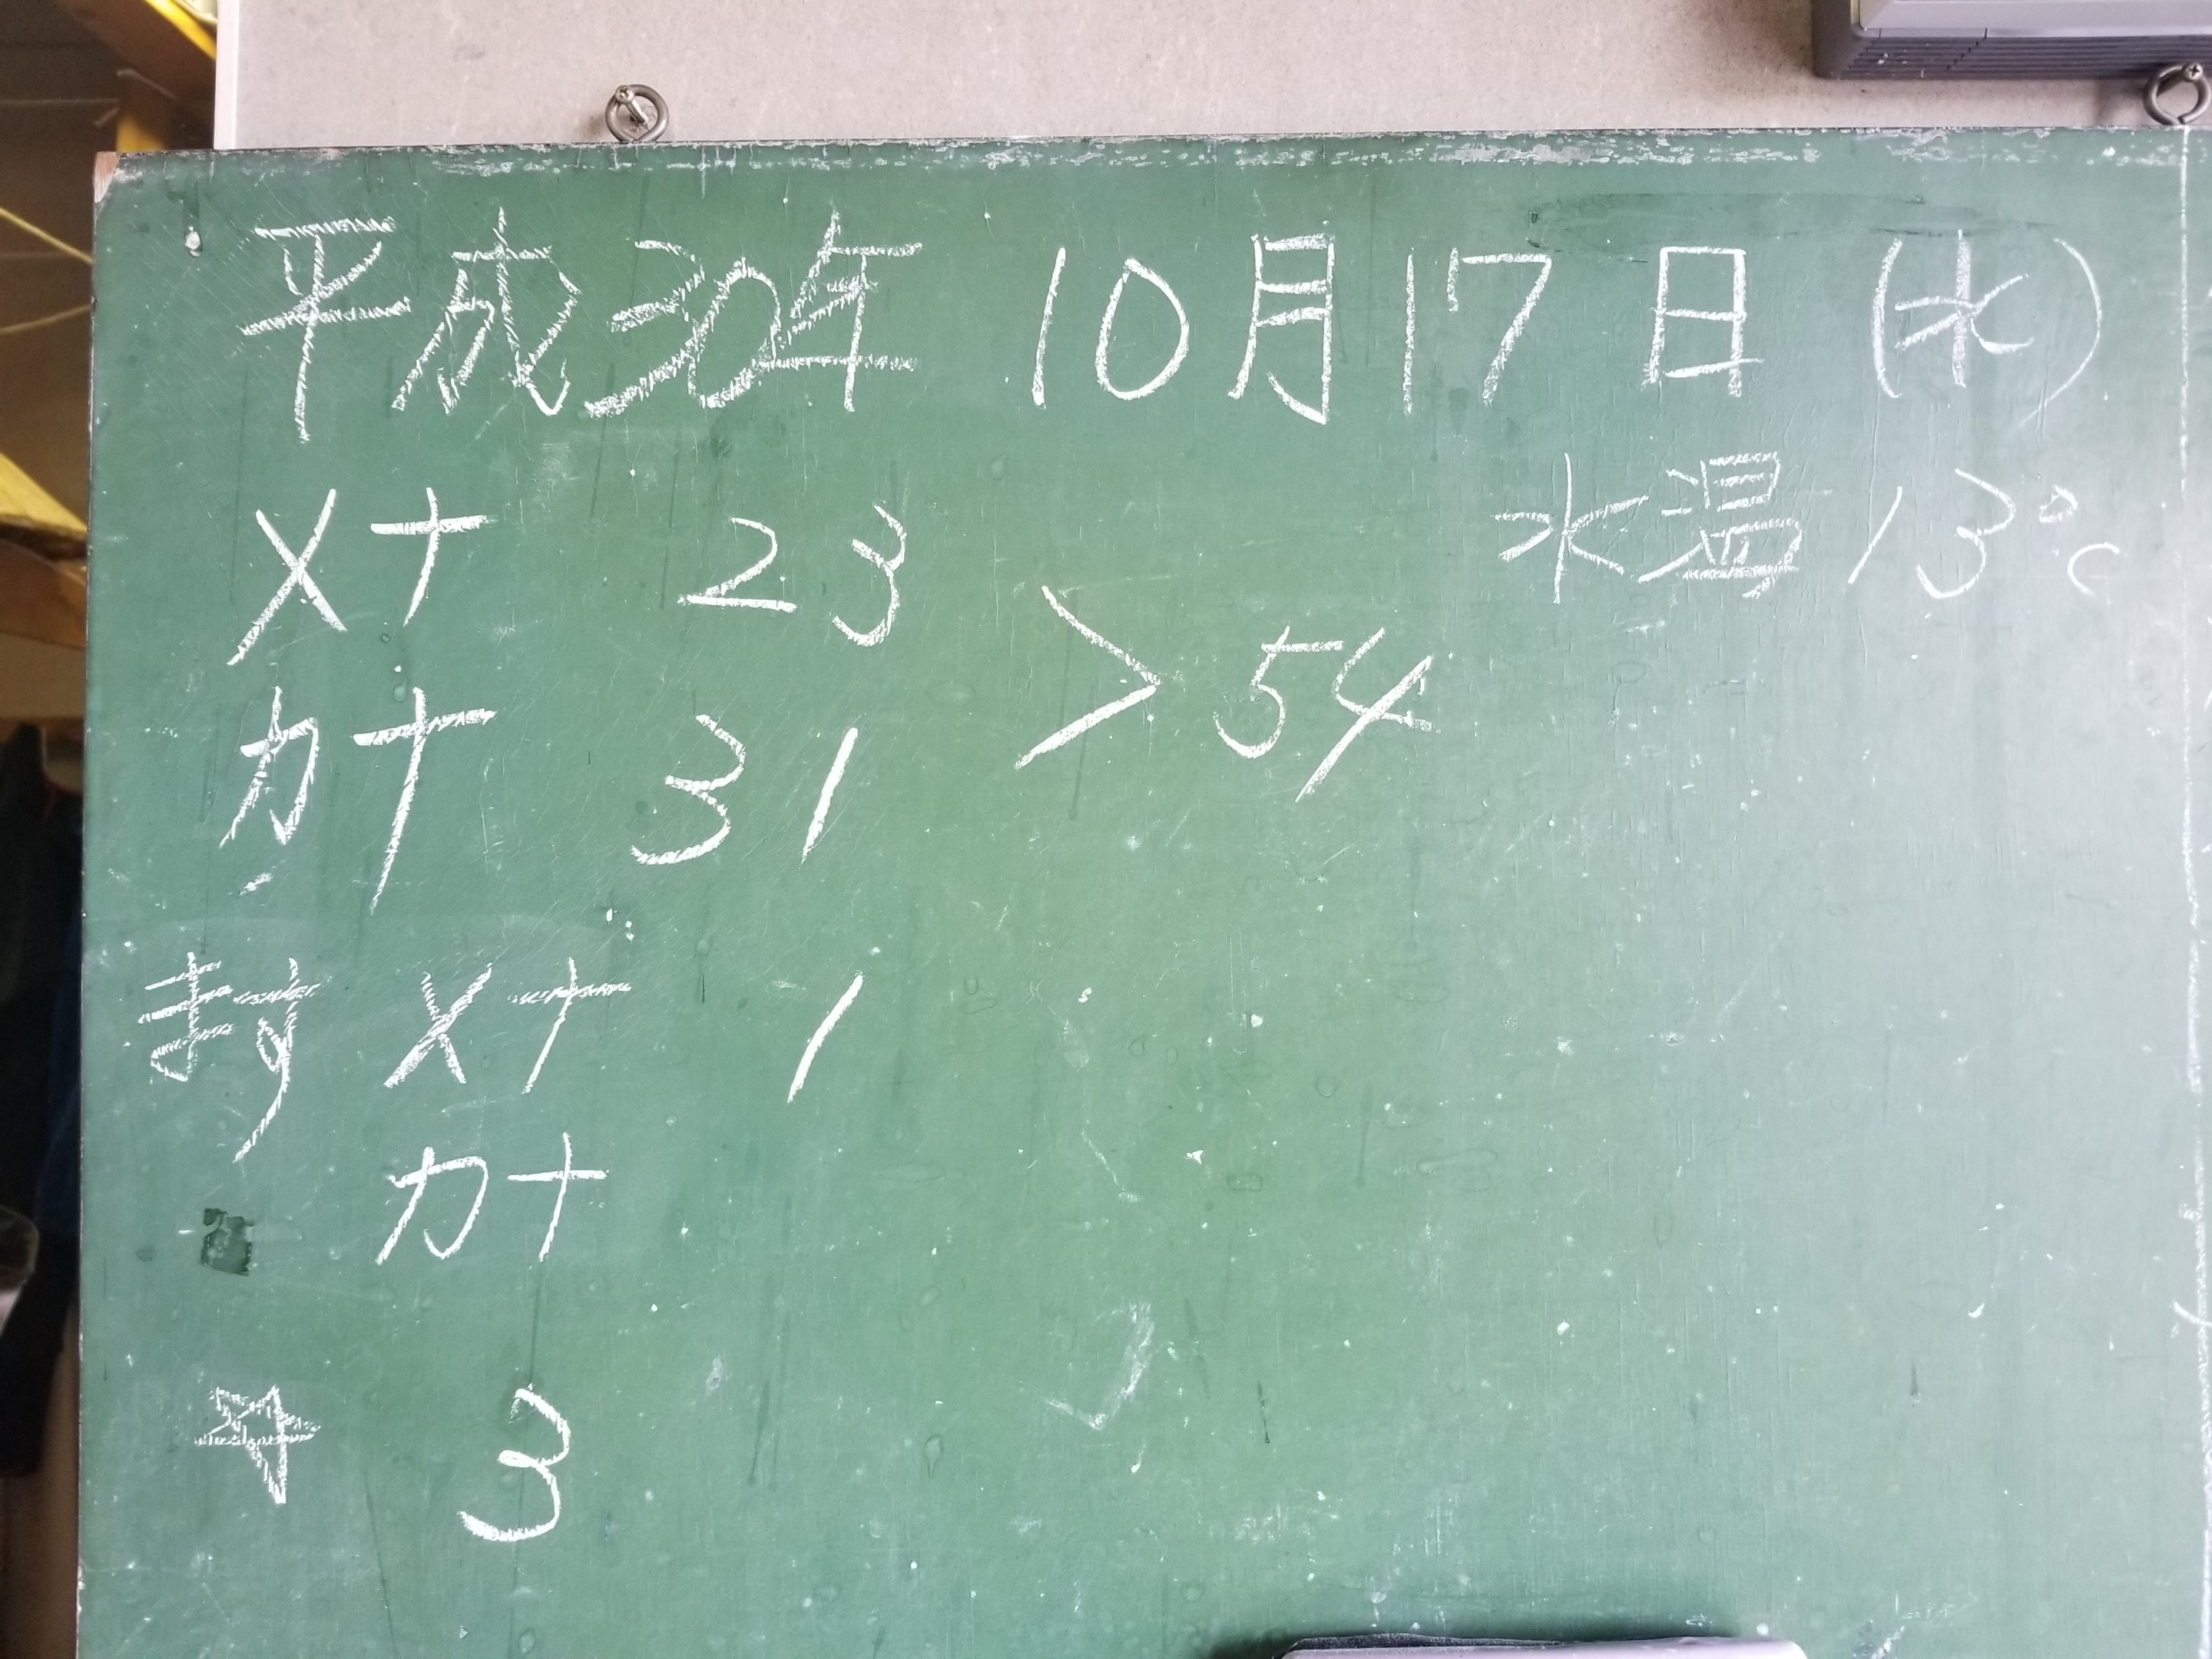 平成30年 10月17日 (水)
水温 13℃
メナ 23
カナ 31
> 54
ます メナ 1
カナ
☆ 3